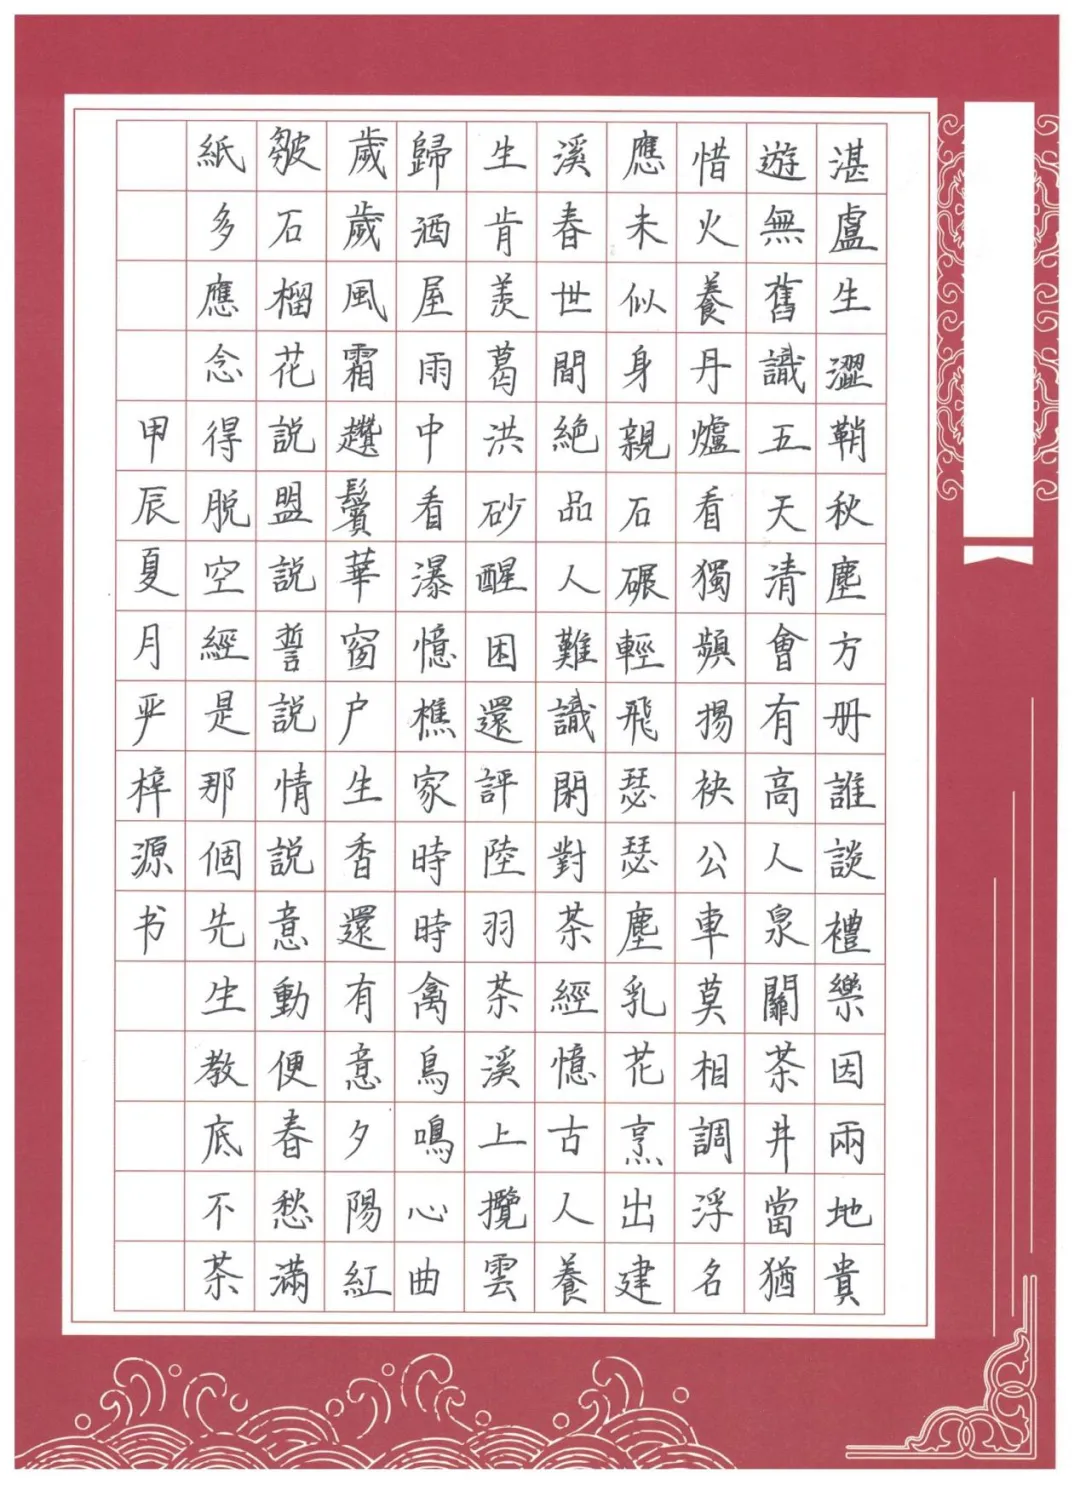 湛盧生澀鞘秋塵方册誰談禮樂因兩地貴
遊無舊識五天清會有高人泉關茶井當猶
惜火養丹爐看獨頻揚袂公車莫相調浮名
應未似身親石碾輕飛瑟瑟塵乳花烹出建
溪春世間絶品人難識閑對茶經憶古人養
生肯羨葛洪砂醒困還評陸羽茶溪上攬雲
歸洒屋雨中看瀑憶樵家時時禽鳥鳴心曲
歲歲風霜趲鬢華窗户生香還有意夕陽紅
皺石榴花説盟説誓説情説意動便春愁滿
紙多應念得脱空經是那個先生教底不茶
甲辰夏月严梓源书